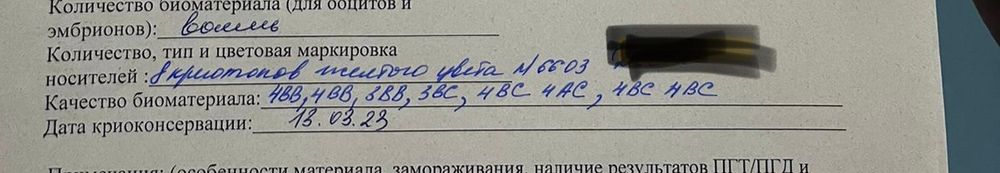 Количество биоматериала (для ооцитов и
эмбрионов): восемь
Количество, тип и цветовая маркировка
носителей : 8 криотопов желтого цвета №6603
Качество биоматериала: 4BB, 4BB, 3BB, 3BC, 4BC 4AC, 4BC 4BC
Дата криоконсервации: 13.03.23
(особенности материала, замораживания, наличие результатов ПГТ/ПГД и